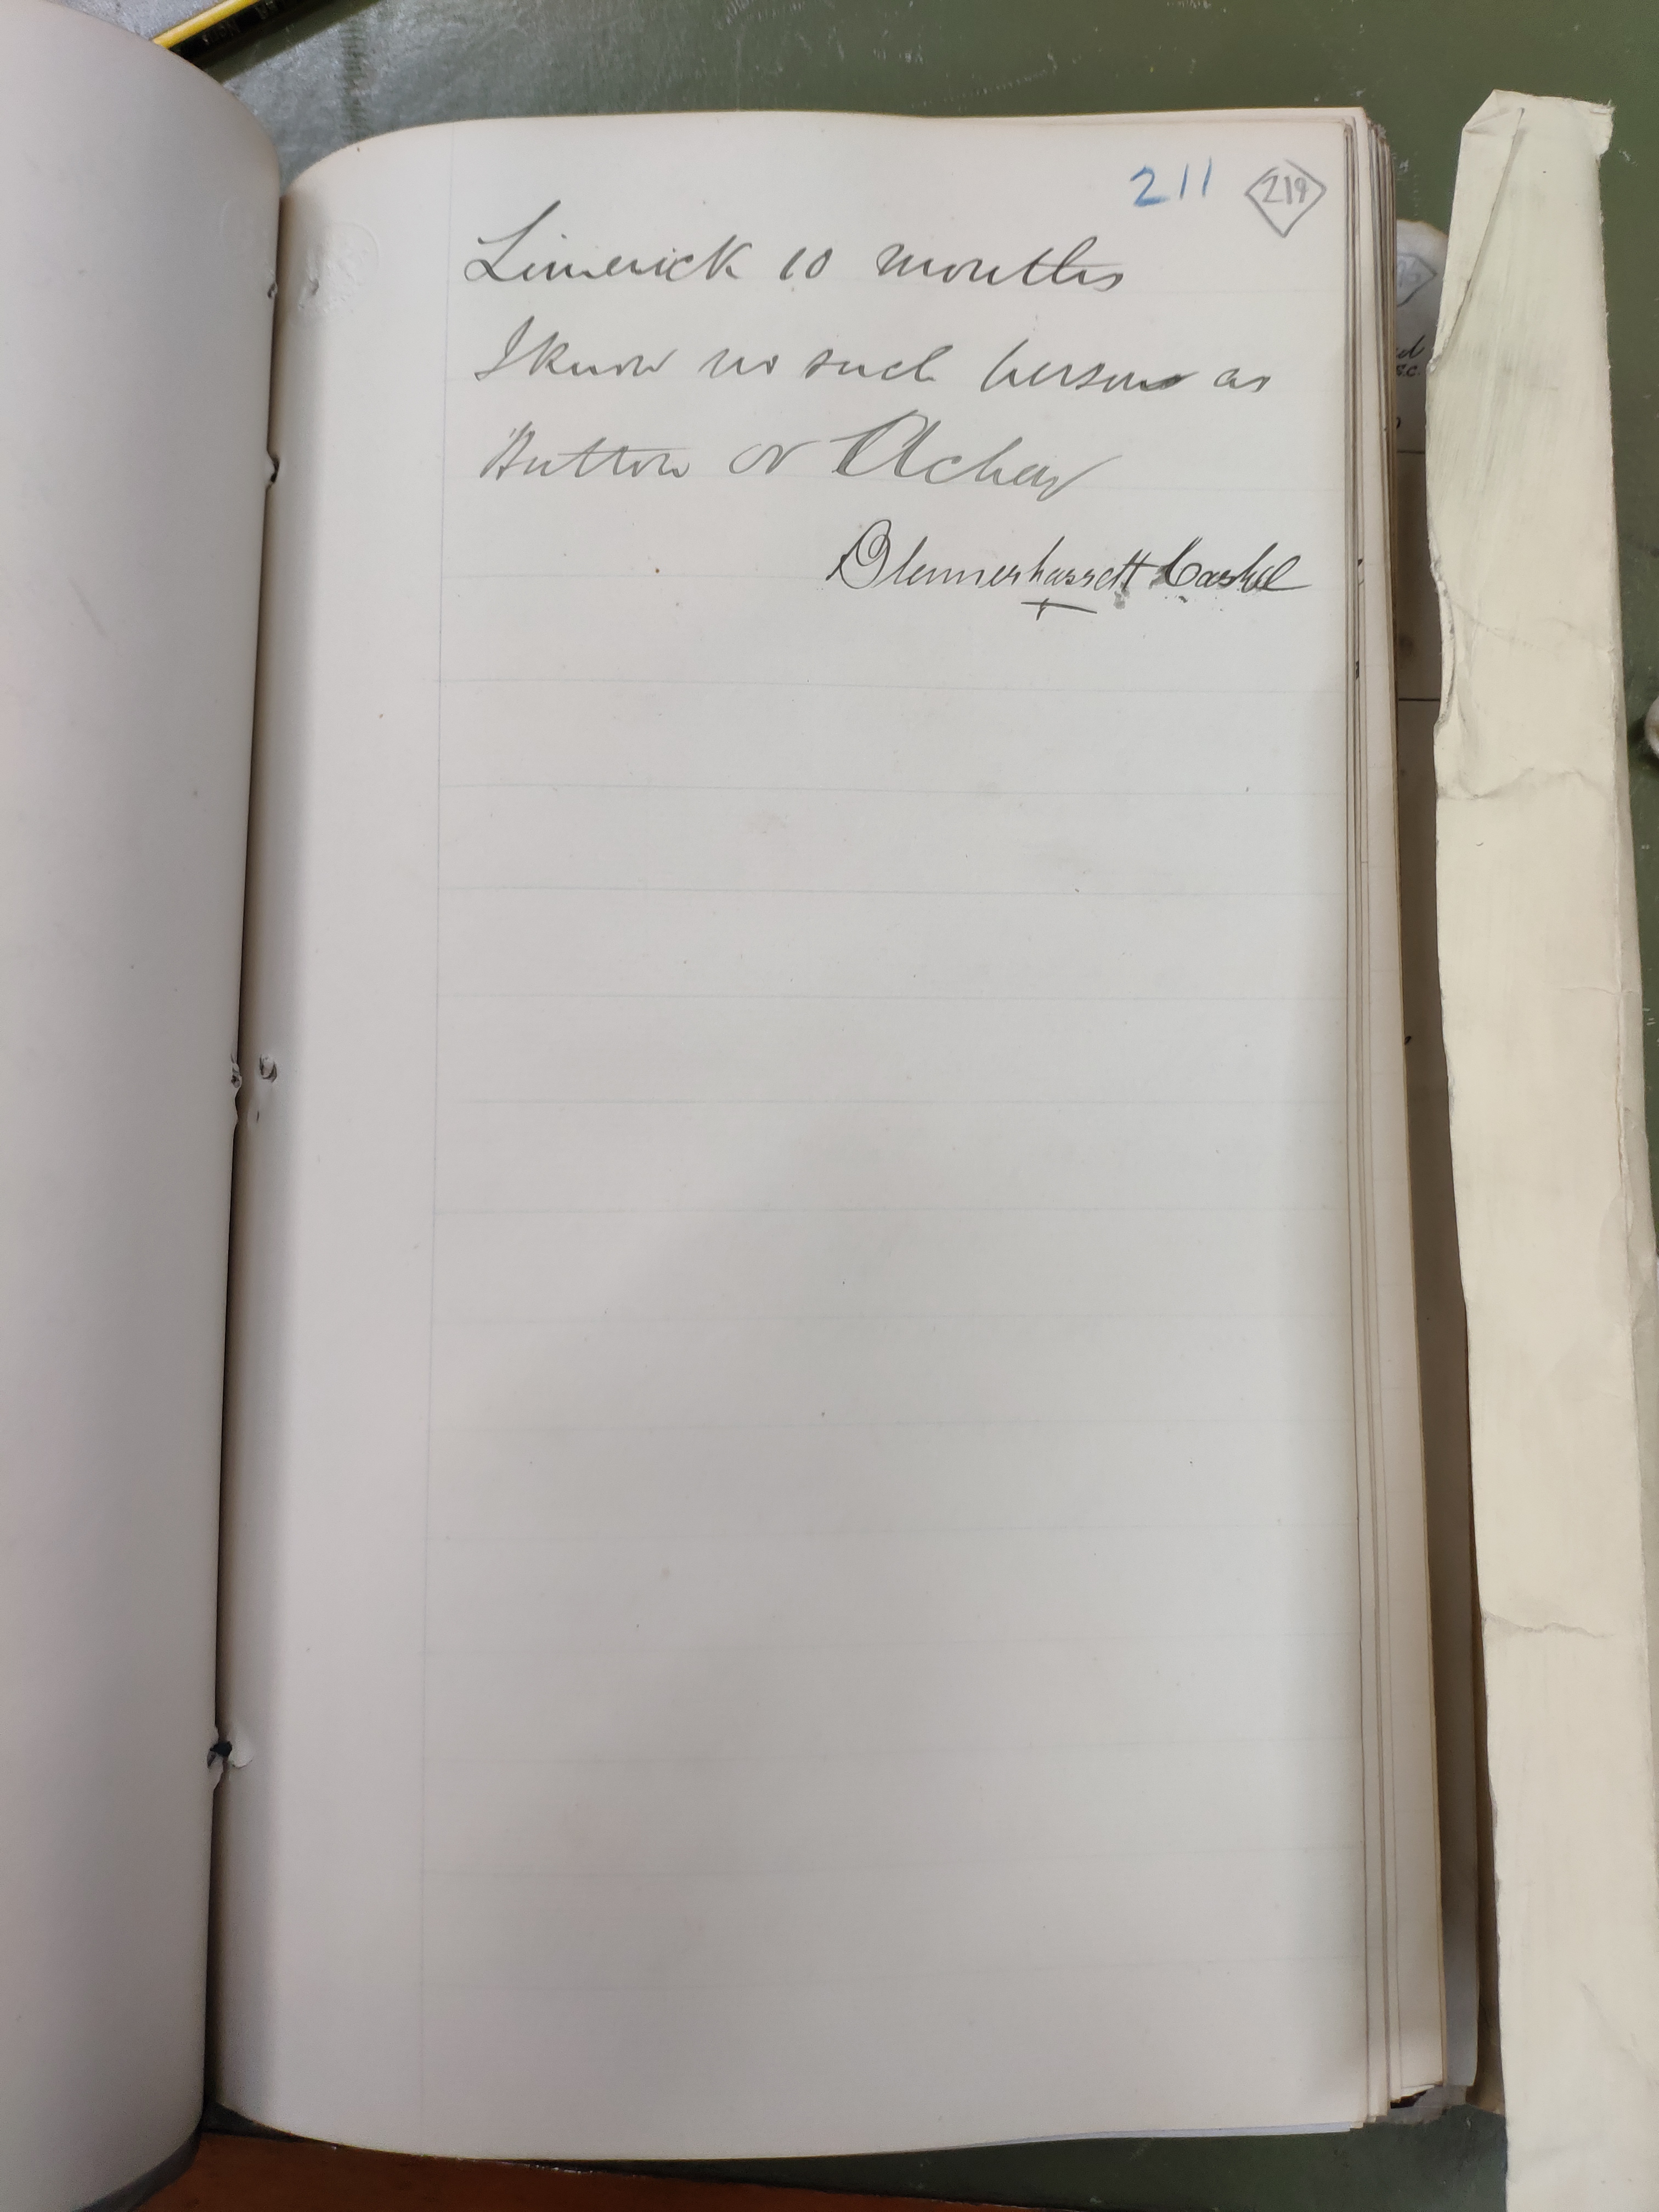 211 219
Limerick 10 months
I know no such person as
Button or
Blennerhassett